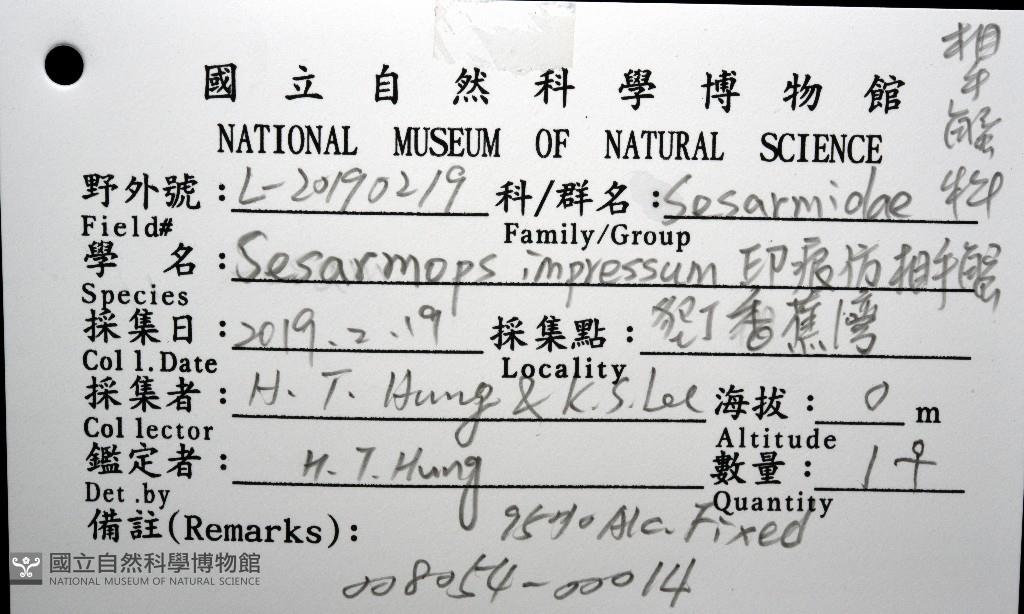 國立自然科學博物館
NATIONAL MUSEUM OF NATURAL SCIENCE
野外號：L-20190219 科/群名：Sesarmidae 相手蟹科
Field# Family/Group
學 名：Sesarmops impressum 印痕仿相手蟹
Species
採集日：2019.2.19 採集點：墾丁香蕉灣
Coll.Date Locality
採集者：H. T. Hung & K.S. Lee 海拔：0 m
Collector Altitude
鑑定者：H. T. Hung 數量：1♀
Det.by Quantity
備註(Remarks)： 95% Alc. Fixed
008054-00014
國立自然科學博物館
NATIONAL MUSEUM OF NATURAL SCIENCE